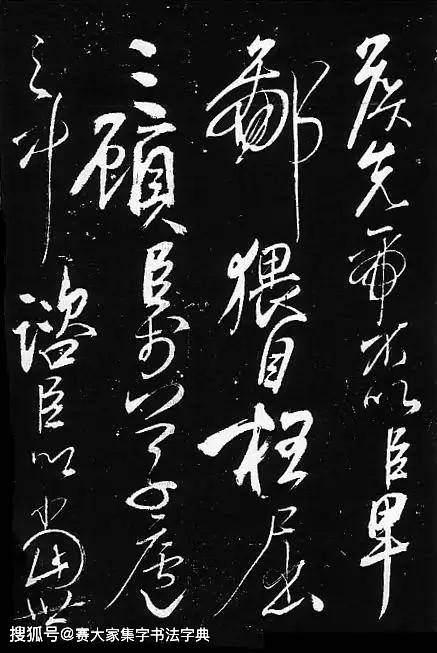 侯先帝不以臣卑
鄙猥自枉屈
三顧臣於草廬
之中諮臣以當世
搜狐号@赛大家集字书法字典